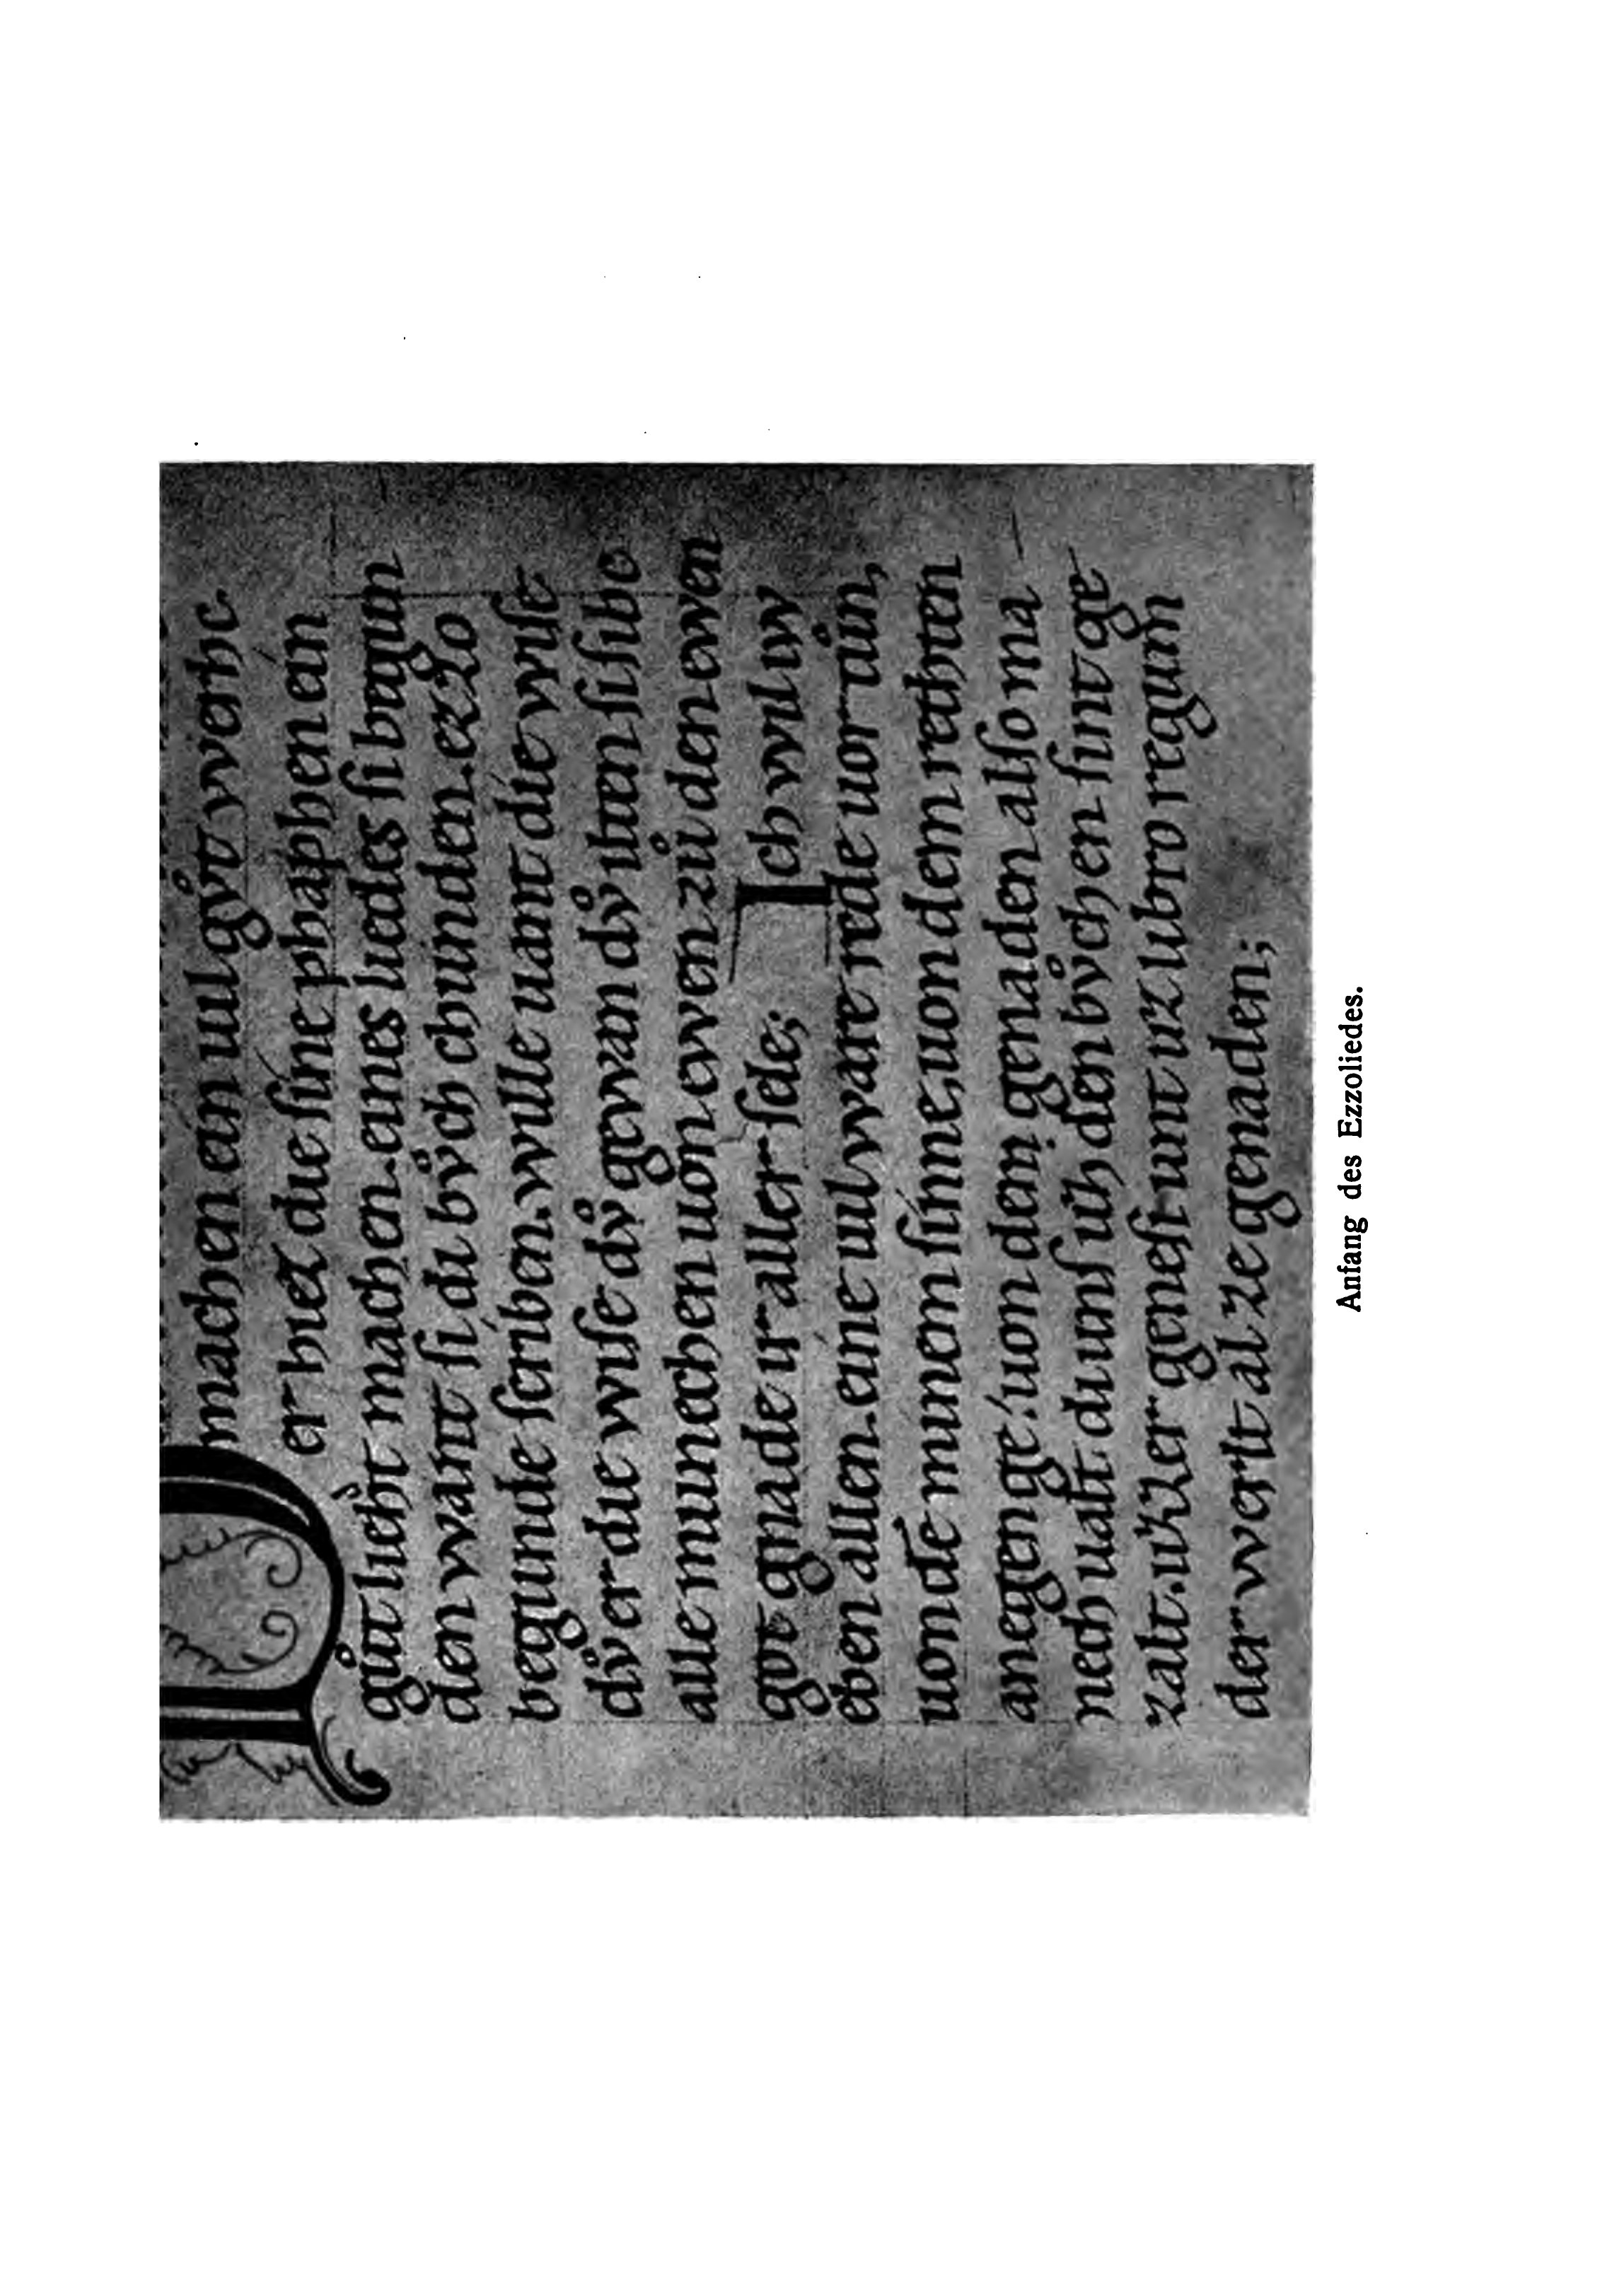 machen ein uil gvͦt werhc
er hiez die ſíne phaphen eín
guͦt lieht machen. eines liedes ſi begun
den want ſi di bvͦch chunden. ezzo
begunde ſcríben. wille uant díe wiſe
dvͦ er die wiſe dvͦ gewan dvͦ ilten ſi ſihc
alle munechen uon ewen zuͦ den ewen
got gnade ir aller ſele; Ich wil iw
eben allen. eine uil ware rede uor tuͦn,
uon dē minem ſinne, uon dem rehten
anegenge. uon den genaden alſo ma
nech ualt. di unſ uh den bvͦchen ſint ge
zalt. uzzer geneſi unt uz libro regum
der werlt al ze genaden;
Anfang des Ezzoliedes.